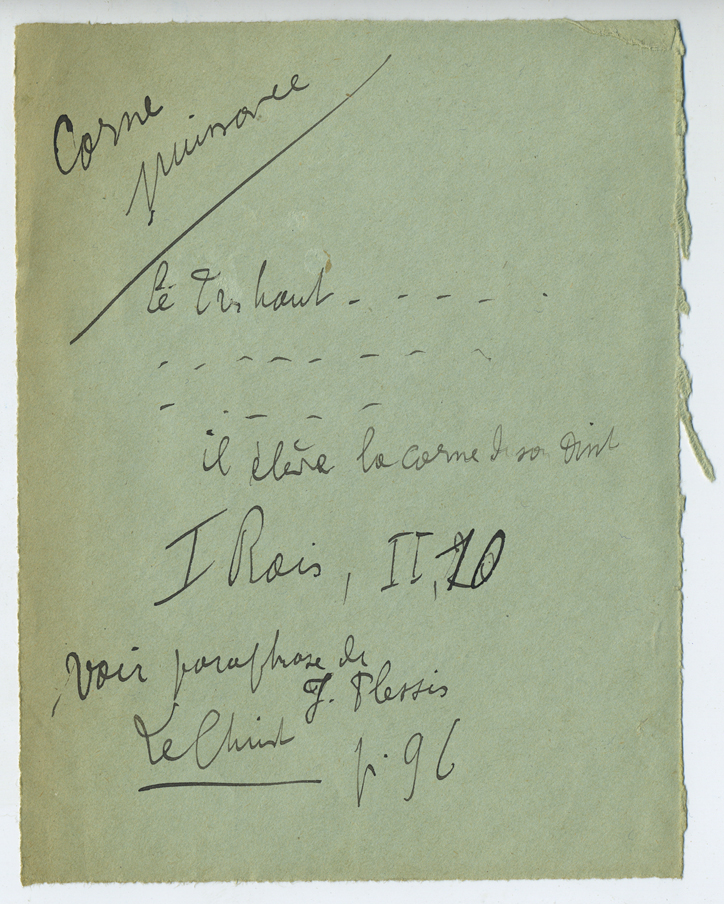 Corne
puissance
le Très haut - - - - .
- - - - - - - -
- - - - -
il élève la corne de son Oint
I Rois, II, 10
Voir paraphrase de
J. Plessis
Le Christ p. 96